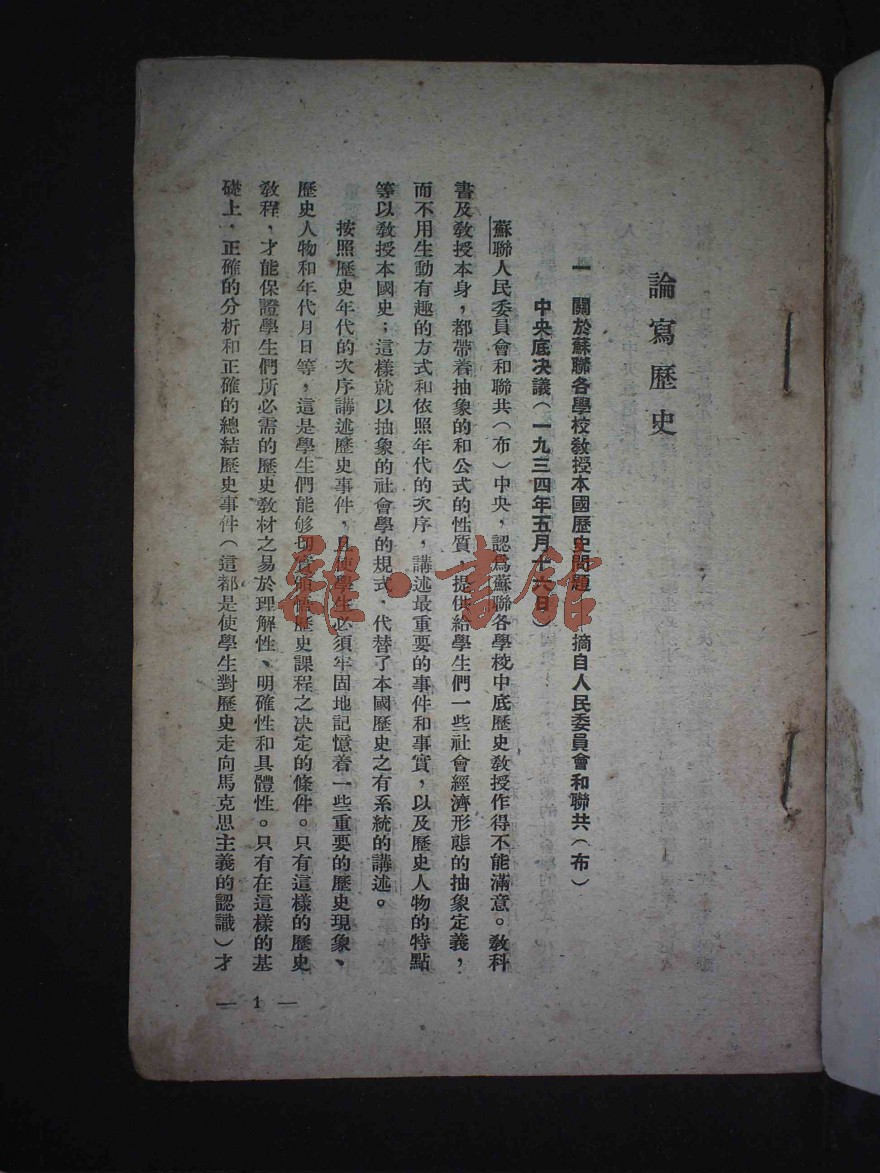 論寫歷史
一 關於蘇聯各學校教授本國歷史問題 摘自人民委員會和聯共（布）
中央底决議（一九三四年五月十六日）
蘇聯人民委員會和聯共（布）中央，認爲蘇聯各學校中底歷史敎授作得不能滿意。敎科
書及敎授本身，都帶着抽象的和公式的性質 提供給學生們一些社會經濟形態的抽象定義，
而不用生動有趣的方式和依照年代的次序，講述最重要的事件和事實，以及歷史人物的特點
等以敎授本國史；這樣就以抽象的社會學的規式，代替了本國歷史之有系統的講述。
按照歷史年代的次序講述歷史事件，且使學生必須牢固地記憶着一些重要的歷史現象、
歷史人物和年代月日等，這是學生們能够切實領悟歷史課程之决定的條件。只有這樣的歷史
敎程，才能保證學生們所必需的歷史敎材之易於理解性、明確性和具體性。只有在這樣的基
礎上，正確的分析和正確的總結歷史事件（這都是使學生對歷史走向馬克思主義的認識）才
— 1 —
雜·書館